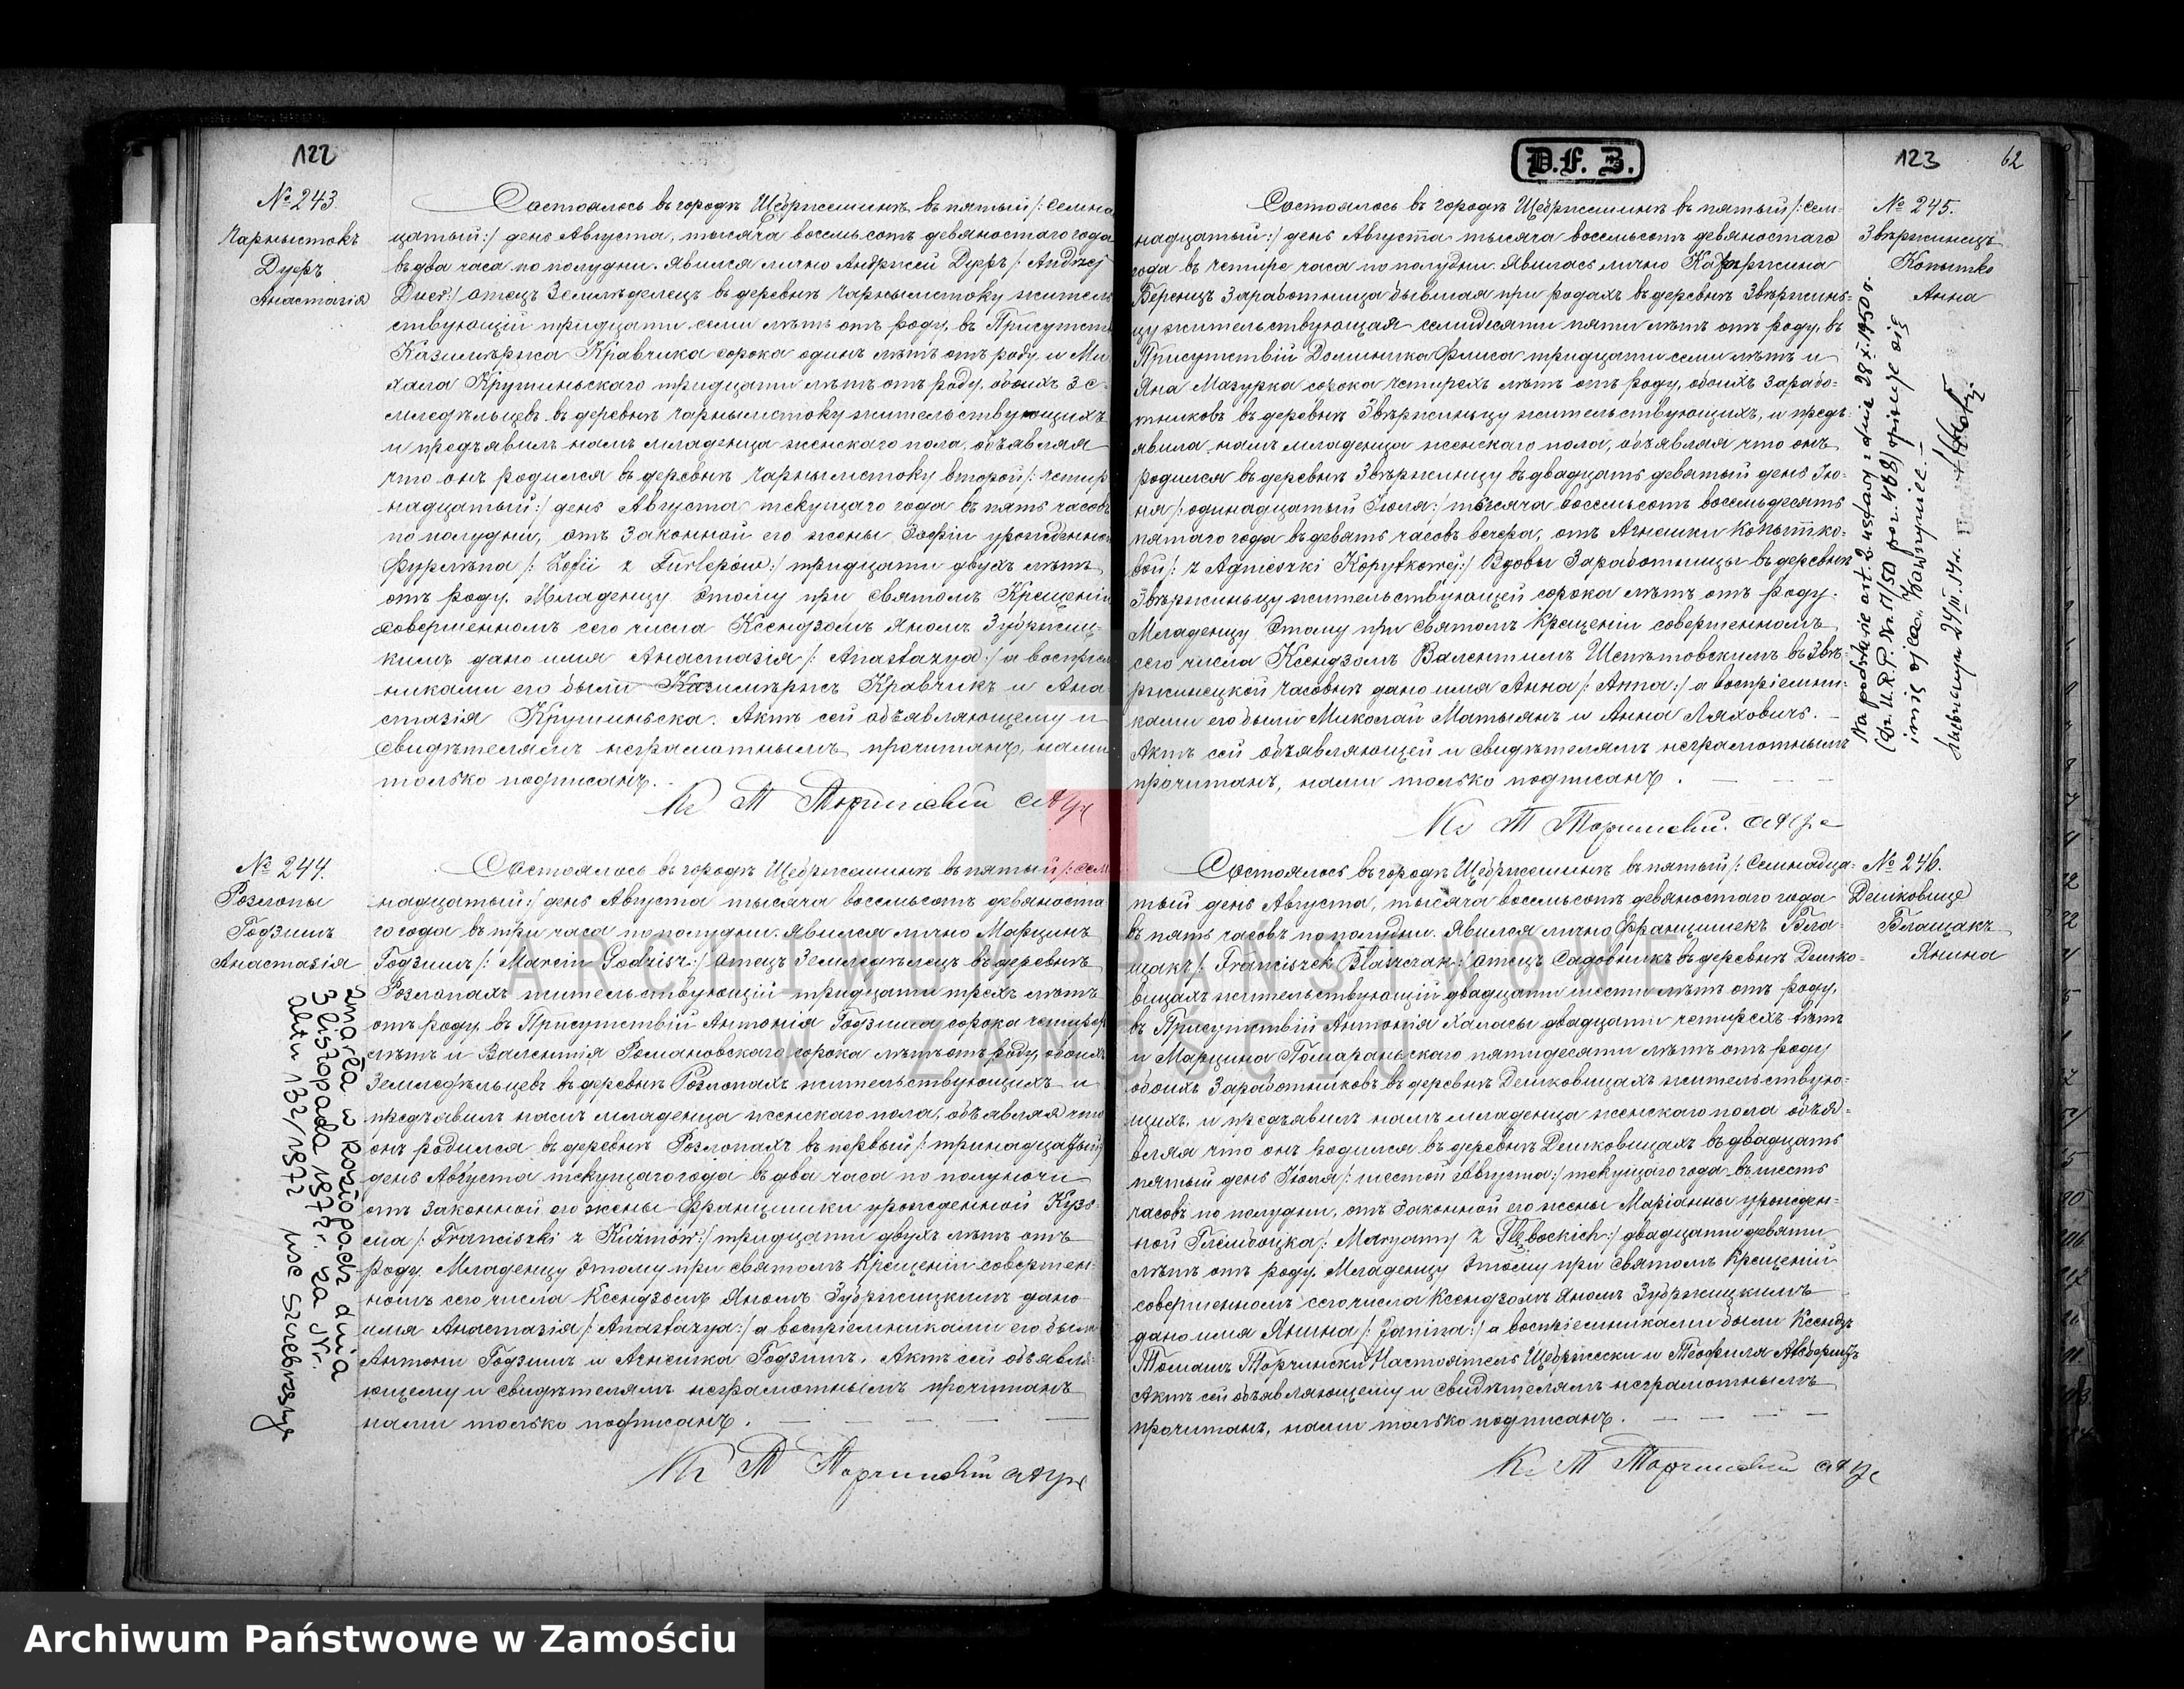 122
№ 243.
Чарныстокъ
Дуеръ
Анастазія
Состоялось въ городѣ Щебржешинѣ въ пятый /: семна
цатый :/ день Августа, тысяча восемьсотъ девяностаго года
въ два часа по полудни. Явился лично Андржей Дуеръ /: Andrzej
Duer :/ отецъ Земледѣлецъ въ деревнѣ Чарнымстоку житель
ствующій тридцати семи лѣтъ отъ роду, въ Присутств
Казимѣржа Кравчика сорока одинъ лѣтъ отъ роду, и Ми
хала Крушиньскаго тридцати лѣтъ отъ роду, обоихъ Зе-
мледѣльцевъ въ деревнѣ Чарнымстоку жительствующихъ
и предъявилъ намъ младенца женскаго пола, объявляя
что онъ родился въ деревнѣ Чарнымстоку второй /: четыр
надцатый :/ день Августа текущаго года въ пять часовъ
по полудни, отъ Законной его жены Зофіи урожденной
Фурлѣпа /: Zofii z Furlepów :/ тридцати двухъ лѣтъ
отъ роду. Младенцу этому при Святомъ Крещеніи
совершенномъ сего числа Ксендзомъ Яномъ Зубржиц-
кимъ дано имя Анастазія /: Anastazya :/ а воспріем
никами его были Казимѣржъ Кравчикъ и Ана
стазія Крушиньска. Актъ сей объявляющему и
Свидѣтелямъ неграмотнымъ прочитанъ, нами
только подписанъ.
№ 244.
Розлопы
Годзишъ
Анастазія
Zmarła w Rozłopach dnia
3 listopada 1972 r. za Nr.
aktu 132/1972 usc Szczebrzeszyn
Состоялось въ городѣ Щебржешинѣ въ пятый /: сем
надцатый :/ день Августа тысяча восемьсотъ девяноста
го года въ три часа по полудни. Явился лично Марцинъ
Годзишъ /: Marcin Godzisz :/ отецъ Земледѣлецъ въ деревнѣ
Розлопахъ жительствующій тридцати трехъ лѣтъ
отъ роду, въ Присутствіи Антонія Годзиша сорока четырех
лѣтъ и Валентія Романовскаго сорока лѣтъ отъ роду, обоихъ
Земледѣльцевъ въ деревнѣ Розлопахъ жительствующихъ и
предъявилъ намъ младенца женскаго пола, объявляя что
онъ родился въ деревнѣ Розлопахъ въ первый /: тринадцатый
день Августа текущаго года въ два часа по полуночи
отъ Законной его жены Францишки урожденной Кузь-
ма /: Franciszki z Kuźmów :/ тридцати двухъ лѣтъ отъ
роду. Младенцу этому при Святомъ Крещеніи совершен-
номъ сего числа Ксендзомъ Яномъ Зубржицкимъ дано
имя Анастазія /: Anastazya :/ а воспріемниками его были
Антони Годзишъ и Агнешка Годзишъ. Актъ сей объявля-
ющему и свидѣтелямъ неграмотнымъ прочитанъ
нами только подписанъ.
D.F.Z.
123
62
№ 245.
Звѣржинецъ
Копытко
Анна
Состоялось въ городѣ Щебржешинѣ въ пятый /: сем-
надцатый :/ день Августа тысяча восемьсотъ девяностаго
года въ четыре часа по полудни. Явилась лично Катаржина
Беренцъ Заработница бывшая при родахъ въ деревнѣ Звѣржинь-
цу жительствующая семидесяти пяти лѣтъ отъ роду, въ
Присутствіи Доминика Флиса тридцати семи лѣтъ и
Яна Мазурка сорока четырехъ лѣтъ отъ роду, обоихъ Зарабо-
тниковъ въ деревнѣ Звѣржиньцу жительствующихъ, и предъ-
явила намъ младенца женскаго пола, объявляя что онъ
родился въ деревнѣ Звѣржинцу въ двадцать девятый день Ію-
ня /: одинадцатый Іюля :/ тысяча восемьсотъ восемьдесятъ
пятаго года въ девять часовъ вечера, отъ Агнешки Копытко-
вой /: z Agnieszki Kopytkowej :/ Вдовы Заработницы въ деревнѣ
Звѣржиньцу жительствующей сорока лѣтъ отъ роду.
Младенцу этому при Святомъ Крещеніи совершенномъ
сего числа Ксендзомъ Валентимъ Шепѣтовскимъ въ Звѣ-
ржинецкой Часовнѣ дано имя Анна /: Anna :/ а воспріемни-
ками его были Миколай Матыянъ и Анна Ляховичъ.
Актъ сей объявляющей и свидѣтелямъ неграмотнымъ
прочитанъ, нами только подписанъ.
Na podstawie art. 2 ustawy z dnia 28 X. 1950 r.
(Dz. U. R. P. Nr 51/50 poz. 468) opisuje się
imię ojca:
№ 246.
Дешковице
Блащакъ
Янина
Состоялось въ городѣ Щебржешинѣ въ пятый /: Семнадца-
тый день Августа, тысяча восемьсотъ девяностаго года
въ пять часовъ по полудни. Явился лично Францишекъ Бла-
щакъ /: Franciszek Błaszczak :/ отецъ Садовникъ въ деревнѣ Дешко-
вицахъ жительствующій двадцати шести лѣтъ отъ роду,
въ Присутствіи Антонія Халасы двадцати четырехъ лѣтъ
и Марцина Помараньскаго пятидесяти лѣтъ отъ роду
обоихъ Заработниковъ въ деревнѣ Дешковицахъ жительствую-
щихъ, и предъявилъ намъ младенца женскаго пола объя-
вляя что онъ родился въ деревнѣ Дешковицахъ въ двадцать
пятый день Іюля /: шестой Августа :/ текущаго года въ шесть
часовъ по полудни, отъ Законной его жены Маріанны урожден-
ной Глембоцка /: Maryanny z Głębockich :/ двадцати девяти
лѣтъ отъ роду. Младенцу этому при Святомъ Крещеніи
совершенномъ сего числа Ксендзомъ Яномъ Зубржицкимъ
дано имя Янина /: Janina :/ а воспріемниками были Ксендзъ
Томашъ Торчински Настоятель Щебржески и Теофиля
Актъ сей объявляющему и Свидѣтелямъ неграмотнымъ
прочитанъ, нами только подписанъ.
ARCHIWUM PAŃSTWOWE
W ZAMOŚCIU
Archiwum Państwowe w Zamościu